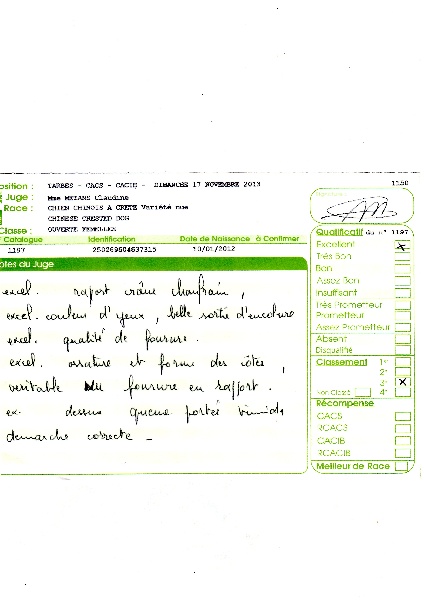 osition : TARBES - CACS - CACIB - DIMANCHE 17 NOVEMBRE 2013
1150
Juge : Mme MEZARS Claudine
Race : CHIEN CHINOIS A CRETE Variété nue
CHINESE CRESTED DOG
Classe : OUVERTE FEMELLES
Catalogue Identification Date de Naissance à Confirmer
1197 250269604637315 10/01/2012
otes du Juge
excel. raport crâne chanfrain,
excel. couleur d'yeux, belle sortie d'encolure
excel. qualité de fourure.
excel. ossature et forme des côtes,
veritable fourrure en rapport.
ex. dessus queue portée
demarche correcte -
Qualificatif du n° 1197
Excellent X
Très Bon
Bon
Assez Bon
Insuffisant
Très Prometteur
Prometteur
Assez Prometteur
Absent
Disqualifié
Classement 1er
2e
3e X
Non Classé 4e
Récompense
CACS
RCACS
CACIB
RCACIB
Meilleur de Race